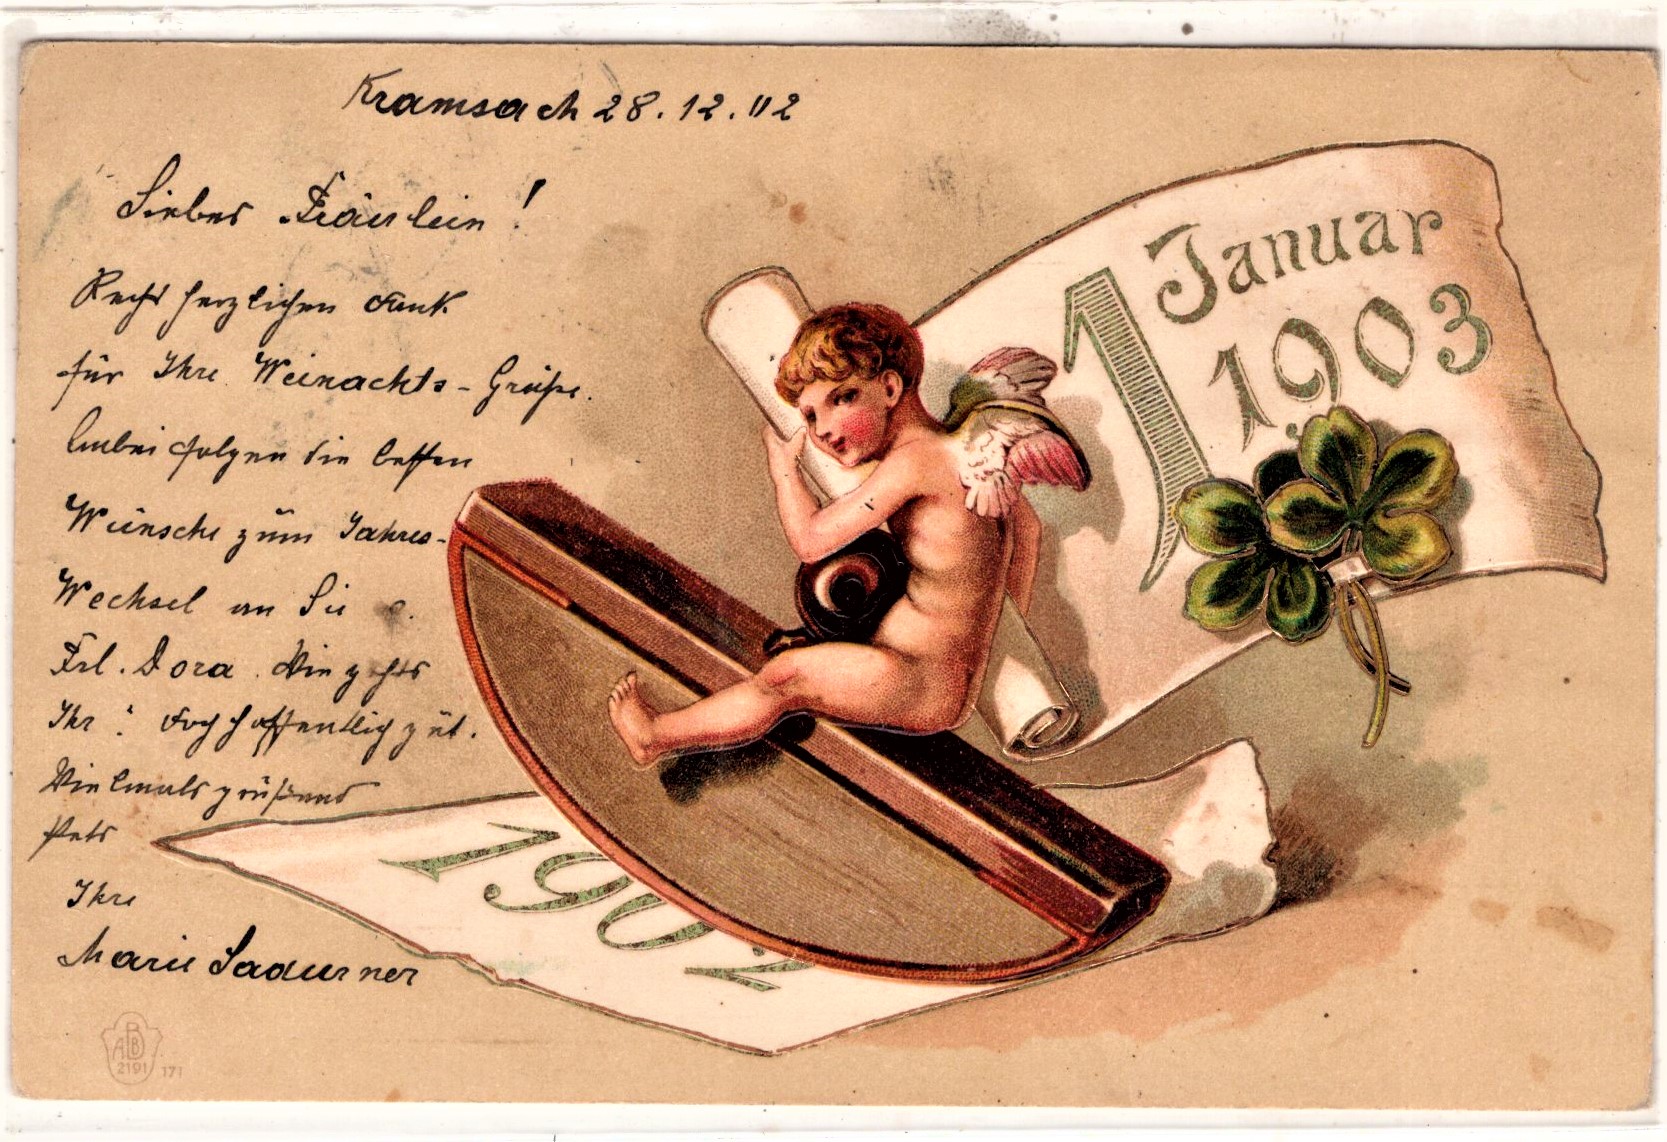 Kramsach 28.12.02
Liebes Fräulein!
Recht herzlichen Dank
für Ihre Weinachts-Grüße.
Anbei folgen die besten
Wünsche zum Jahres-
Wechsel an Sie
Frl. Dora. Wie gehts
Ihr? Doch hoffentlich gut.
Vielmals grüßend
stets
Ihre
Marie Sadurner
1 Januar
1903
1902
ABD
2191 171